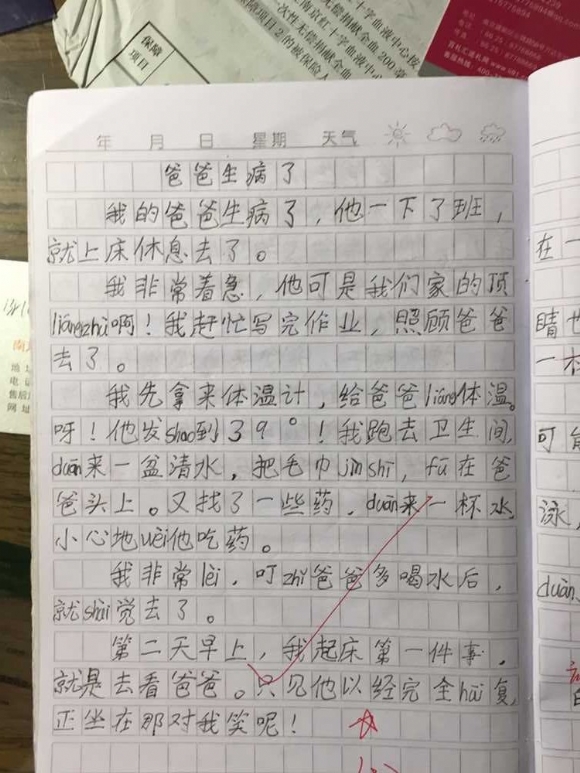 保障
项目
南京红十字血液中心按
次性无偿捐献全血200毫
障项目2的被保险人
年 月 日 星期 天气
爸爸生病了
我的爸爸生病了，他一下了班，
就上床休息去了。
我非常着急，他可是我们家的顶
liángzhù啊！我赶忙写完作业，照顾爸爸
去了。
我先拿来体温计，给爸爸liáng体温。
呀！他发shāo到39°！我跑去卫生间，
duān来一盆清水，把毛巾jìnshī，fū在爸
爸头上。又找了一些药，duān来一杯水，
小心地wèi他吃药。
我非常lèi，叮zhǔ爸爸多喝水后，
就shuì觉去了。
第二天早上，我起床第一件事，
就是去看爸爸。只见他以经完全huī复，
正坐在那对我笑呢！
在一
睛也
一木
可能
泳，
duān